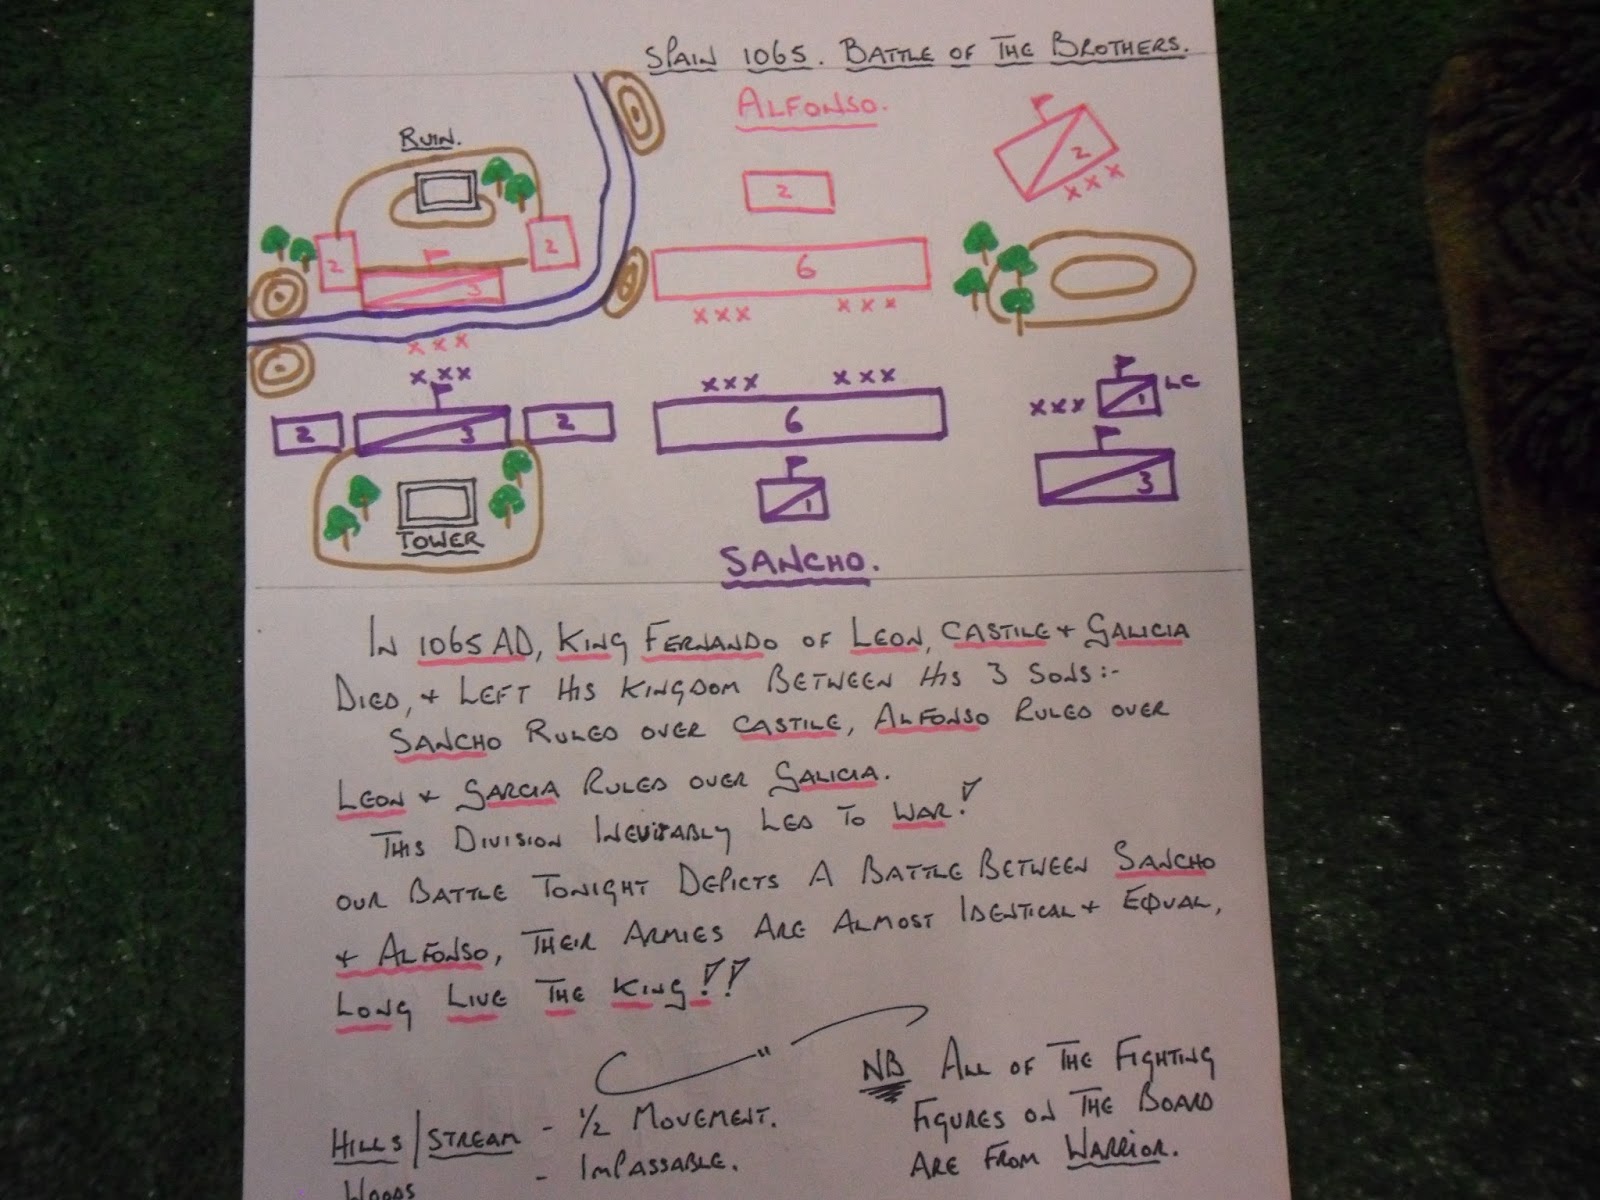 SPAIN 1065. BATTLE OF THE BROTHERS.
ALFONSO.
RUIN.
2
2
2
2
3
6
xxx
xxx xxx
xxx
xxx xxx
xxx
LC
1
2 3 2
6
3
1
TOWER
SANCHO.
IN 1065 AD, KING FERNANDO OF LEON, CASTILE + GALICIA
DIED, + LEFT HIS KINGDOM BETWEEN HIS 3 SONS:-
SANCHO RULED OVER CASTILE, ALFONSO RULED OVER
LEON + GARCIA RULED OVER GALICIA.
THIS DIVISION INEVITABLY LED TO WAR!
OUR BATTLE TONIGHT DEPICTS A BATTLE BETWEEN SANCHO
+ ALFONSO, THEIR ARMIES ARE ALMOST IDENTICAL + EQUAL,
LONG LIVE THE KING!!
HILLS/STREAM - 1/2 MOVEMENT.
WOODS - IMPASSABLE.
NB ALL OF THE FIGHTING
FIGURES ON THE BOARD
ARE FROM WARRIOR.